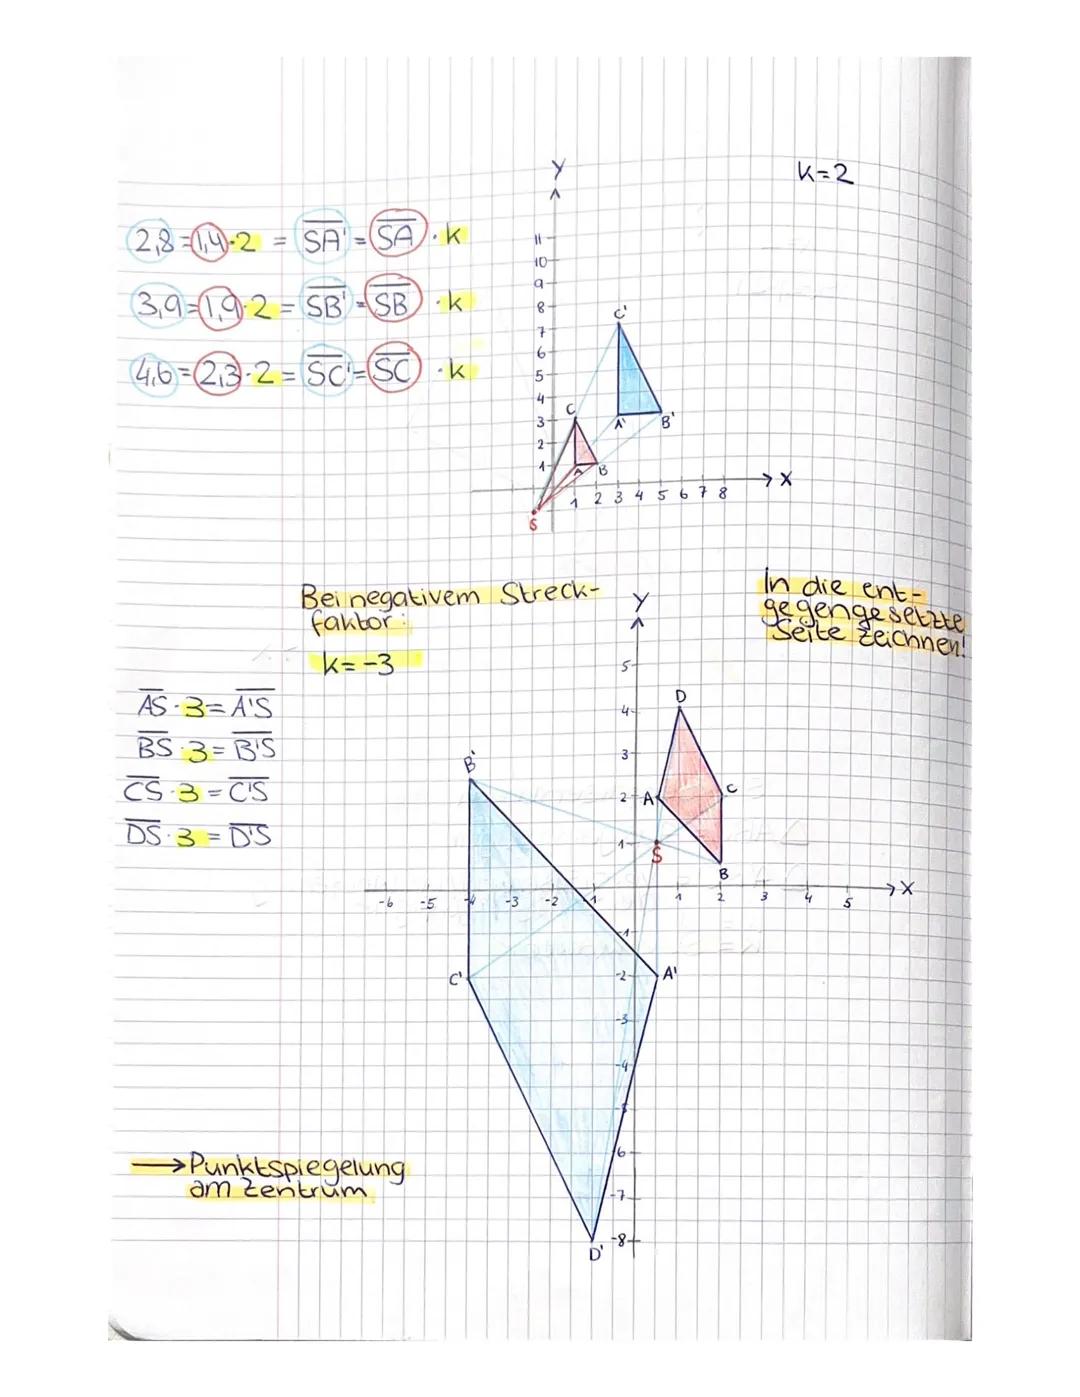 k=2
2,8=1,4·2 = S̅A̅'̅ = S̅A̅ · k
3,9=1,9·2 = S̅B̅'̅ = S̅B̅ · k
4,6=2,3·2 = S̅C̅'̅ = S̅C̅ · k
Y
11
10
9
8
7
6
5
4
3
2
1
1 2 3 4 5 6 7 8
X
C'
A'
B'
C
A
B
S
Bei negativem Streck-
faktor:
k=-3
In die ent-
gegengesetzte
Seite zeichnen!
A̅S̅ · 3 = A̅'̅S̅
B̅S̅ · 3 = B̅'̅S̅
C̅S̅ · 3 = C̅'̅S̅
D̅S̅ · 3 = D̅'̅S̅
Y
5
4
3
2
1
D
A
C
S
B
B'
-6 -5 -4 -3 -2 -1 1 2 3 4 5
X
-1
-2
-3
-4
-5
-6
-7
-8
C'
A'
D'
→ Punktspiegelung
am Zentrum